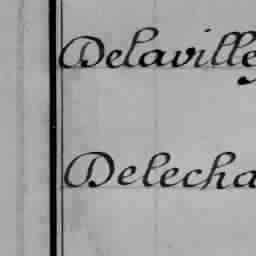 Delaville
Delecha